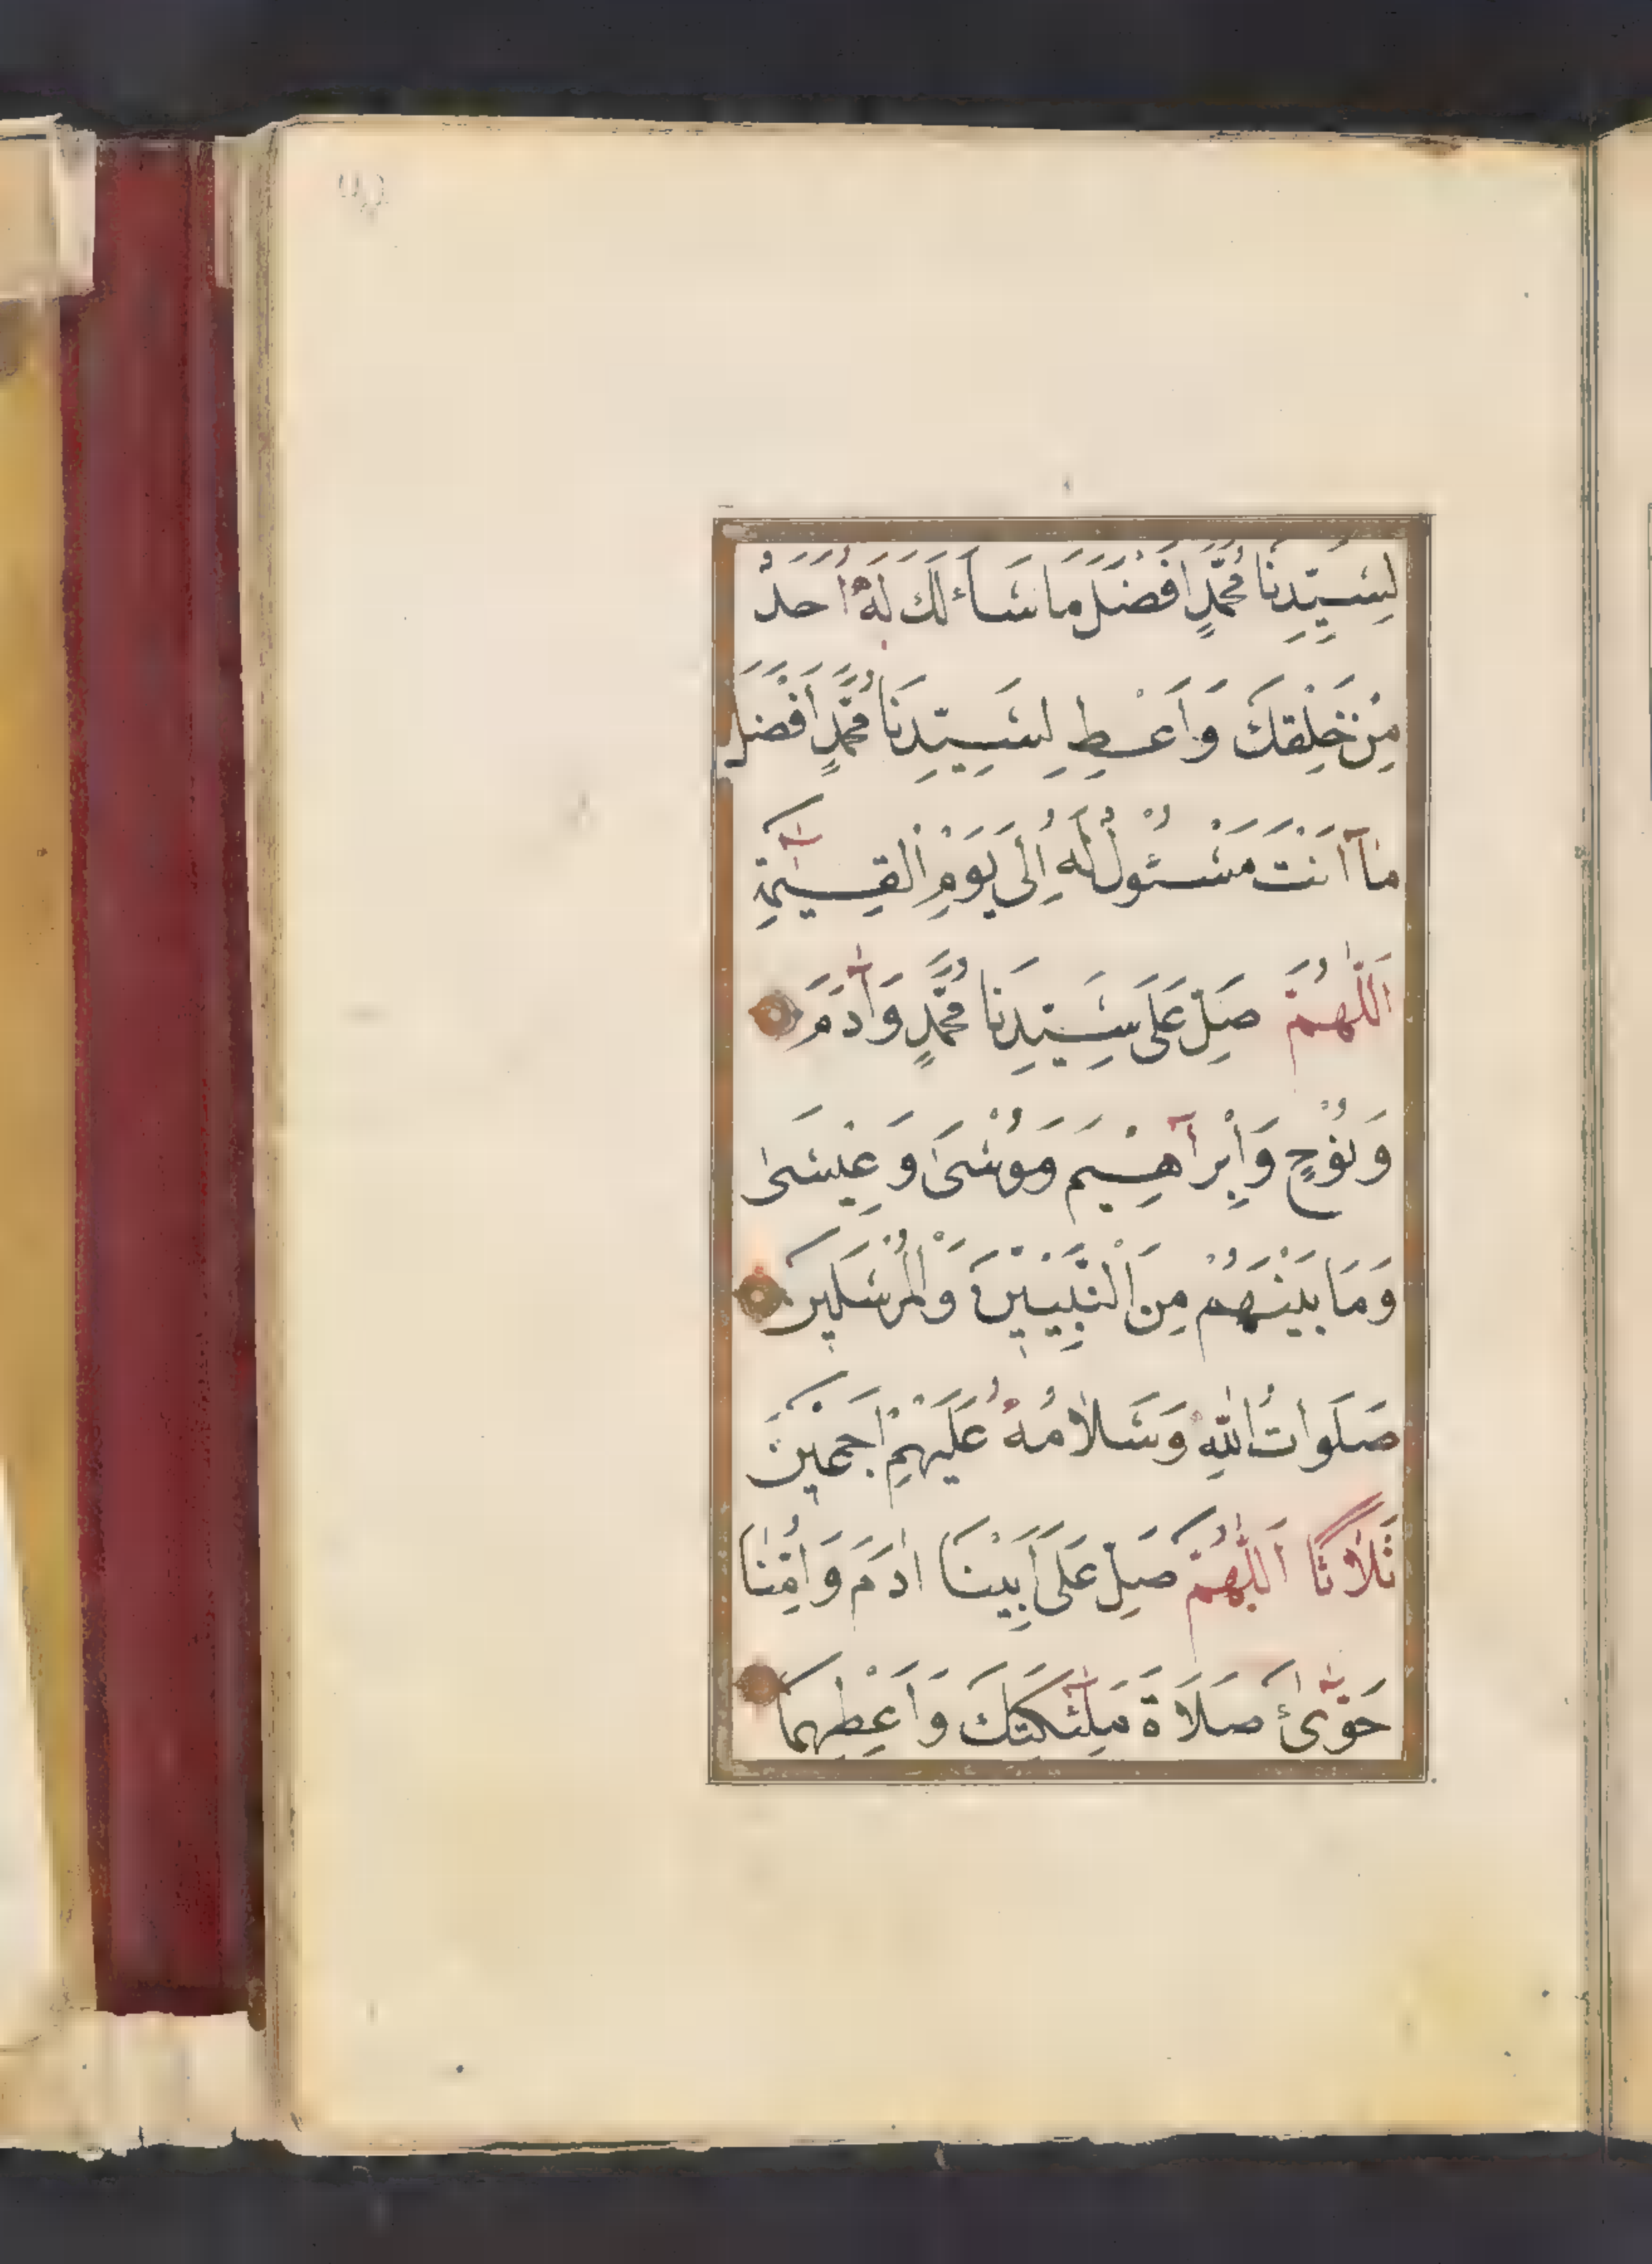 لِسَيِّدِنَا مُحَمَّدٍ اَفْضَلَ مَا سَأَلَكَ لَهُ اَحَدٌ
مِنْ خَلْقِكَ وَاَعْطِ لِسَيِّدِنَا مُحَمَّدٍ اَفْضَلَ
مَآ اَنْتَ مَسْئُولٌ لَهُ اِلَى يَوْمِ الْقِيٰمَةِ
اَللّٰهُمَّ صَلِّ عَلَى سَيِّدِنَا مُحَمَّدٍ وَاٰدَمَ
وَنُوْحٍ وَاِبْرَاهِيْمَ وَمُوْسَى وَعِيْسَى
وَمَا بَيْنَهُمْ مِنَ النَّبِيِّيْنَ وَالْمُرْسَلِيْنَ
صَلَوَاتُ اللّٰهِ وَسَلَامُهُ عَلَيْهِمْ اَجْمَعِيْنَ
ثَلَاثًا اَللّٰهُمَّ صَلِّ عَلَى اَبِيْنَا اٰدَمَ وَاُمِّنَا
حَوَّىٰٓءَ صَلَاةَ مَلٰٓئِكَتِكَ وَاَعْطِهِمَا